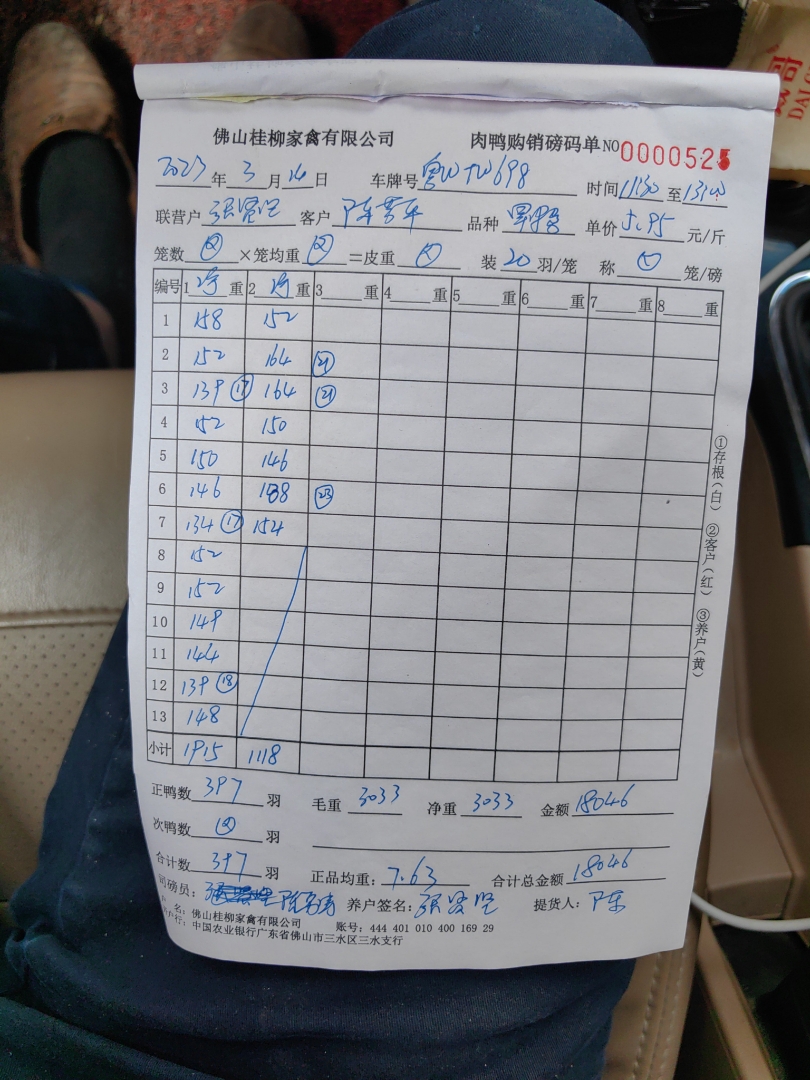 佛山桂柳家禽有限公司 肉鸭购销磅码单 NO 000052
2023年 3月 16日 车牌号 粤W 698 时间 11:30 至 13:00
联营户 张贤坚 客户 陈 车 品种 单价 5.95 元/斤
笼数 ×笼均重 =皮重 装 20 羽/笼 称 笼/磅
编号 1 重 2 重 3 重 4 重 5 重 6 重 7 重 8 重
1 158 152
2 152 164 21
3 139 17 164 21
4 152 150
5 150 146
6 146 188 23
7 134 17 154
8 152
9 152
10 149
11 144
12 139 18
13 148
小计 1915 1118
①存根(白) ②客户(红) ③养户(黄)
正鸭数 397 羽 毛重 3033 净重 3033 金额 18046
次鸭数 羽
合计数 397 羽 正品均重: 7.63 合计总金额 18046
司磅员: 养户签名: 张贤坚 提货人:
户 名: 佛山桂柳家禽有限公司 账号: 444 401 010 400 169 29
户行: 中国农业银行广东省佛山市三水区三水支行